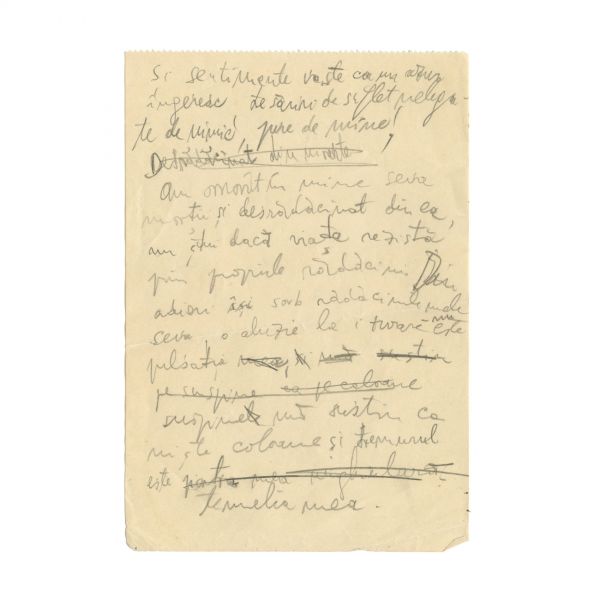 și sentimente vaste ca un auz
îngeresc de sărire de suflet nelega-
te de nimic, pure de mine!
Desrădăcinat din moarte
Am omorât în mine seva
morții, și desrădăcinat din ea,
nu știu dacă viața rezistă
prin propriile rădăcini. Din
adieri își sorb rădăcinile mele
seva, o aluzie la i
nu este
pulsația mea, și mă susțin
pe suspine ca pe coloane
suspinele mă susțin ca
niște coloane și tremurul
este piatra mea unghiulară
temelia mea.